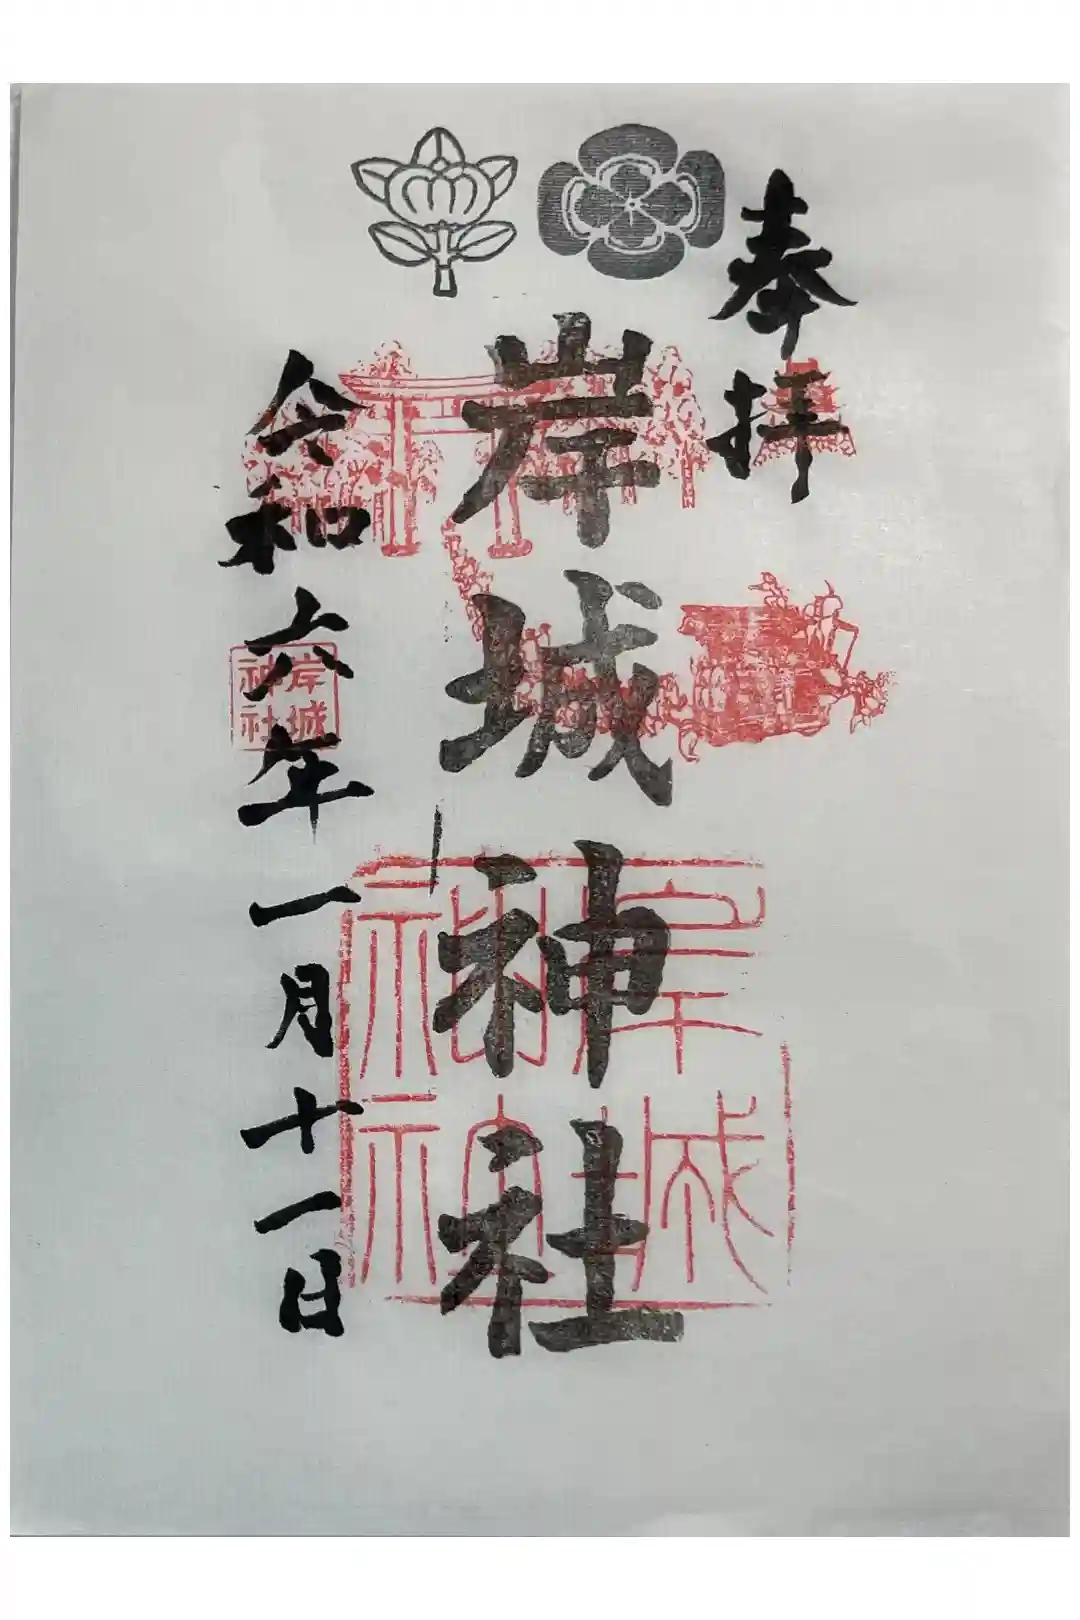 奉拝
岸城神社
岸城神社
岸城
神社
令和六年一月十一日